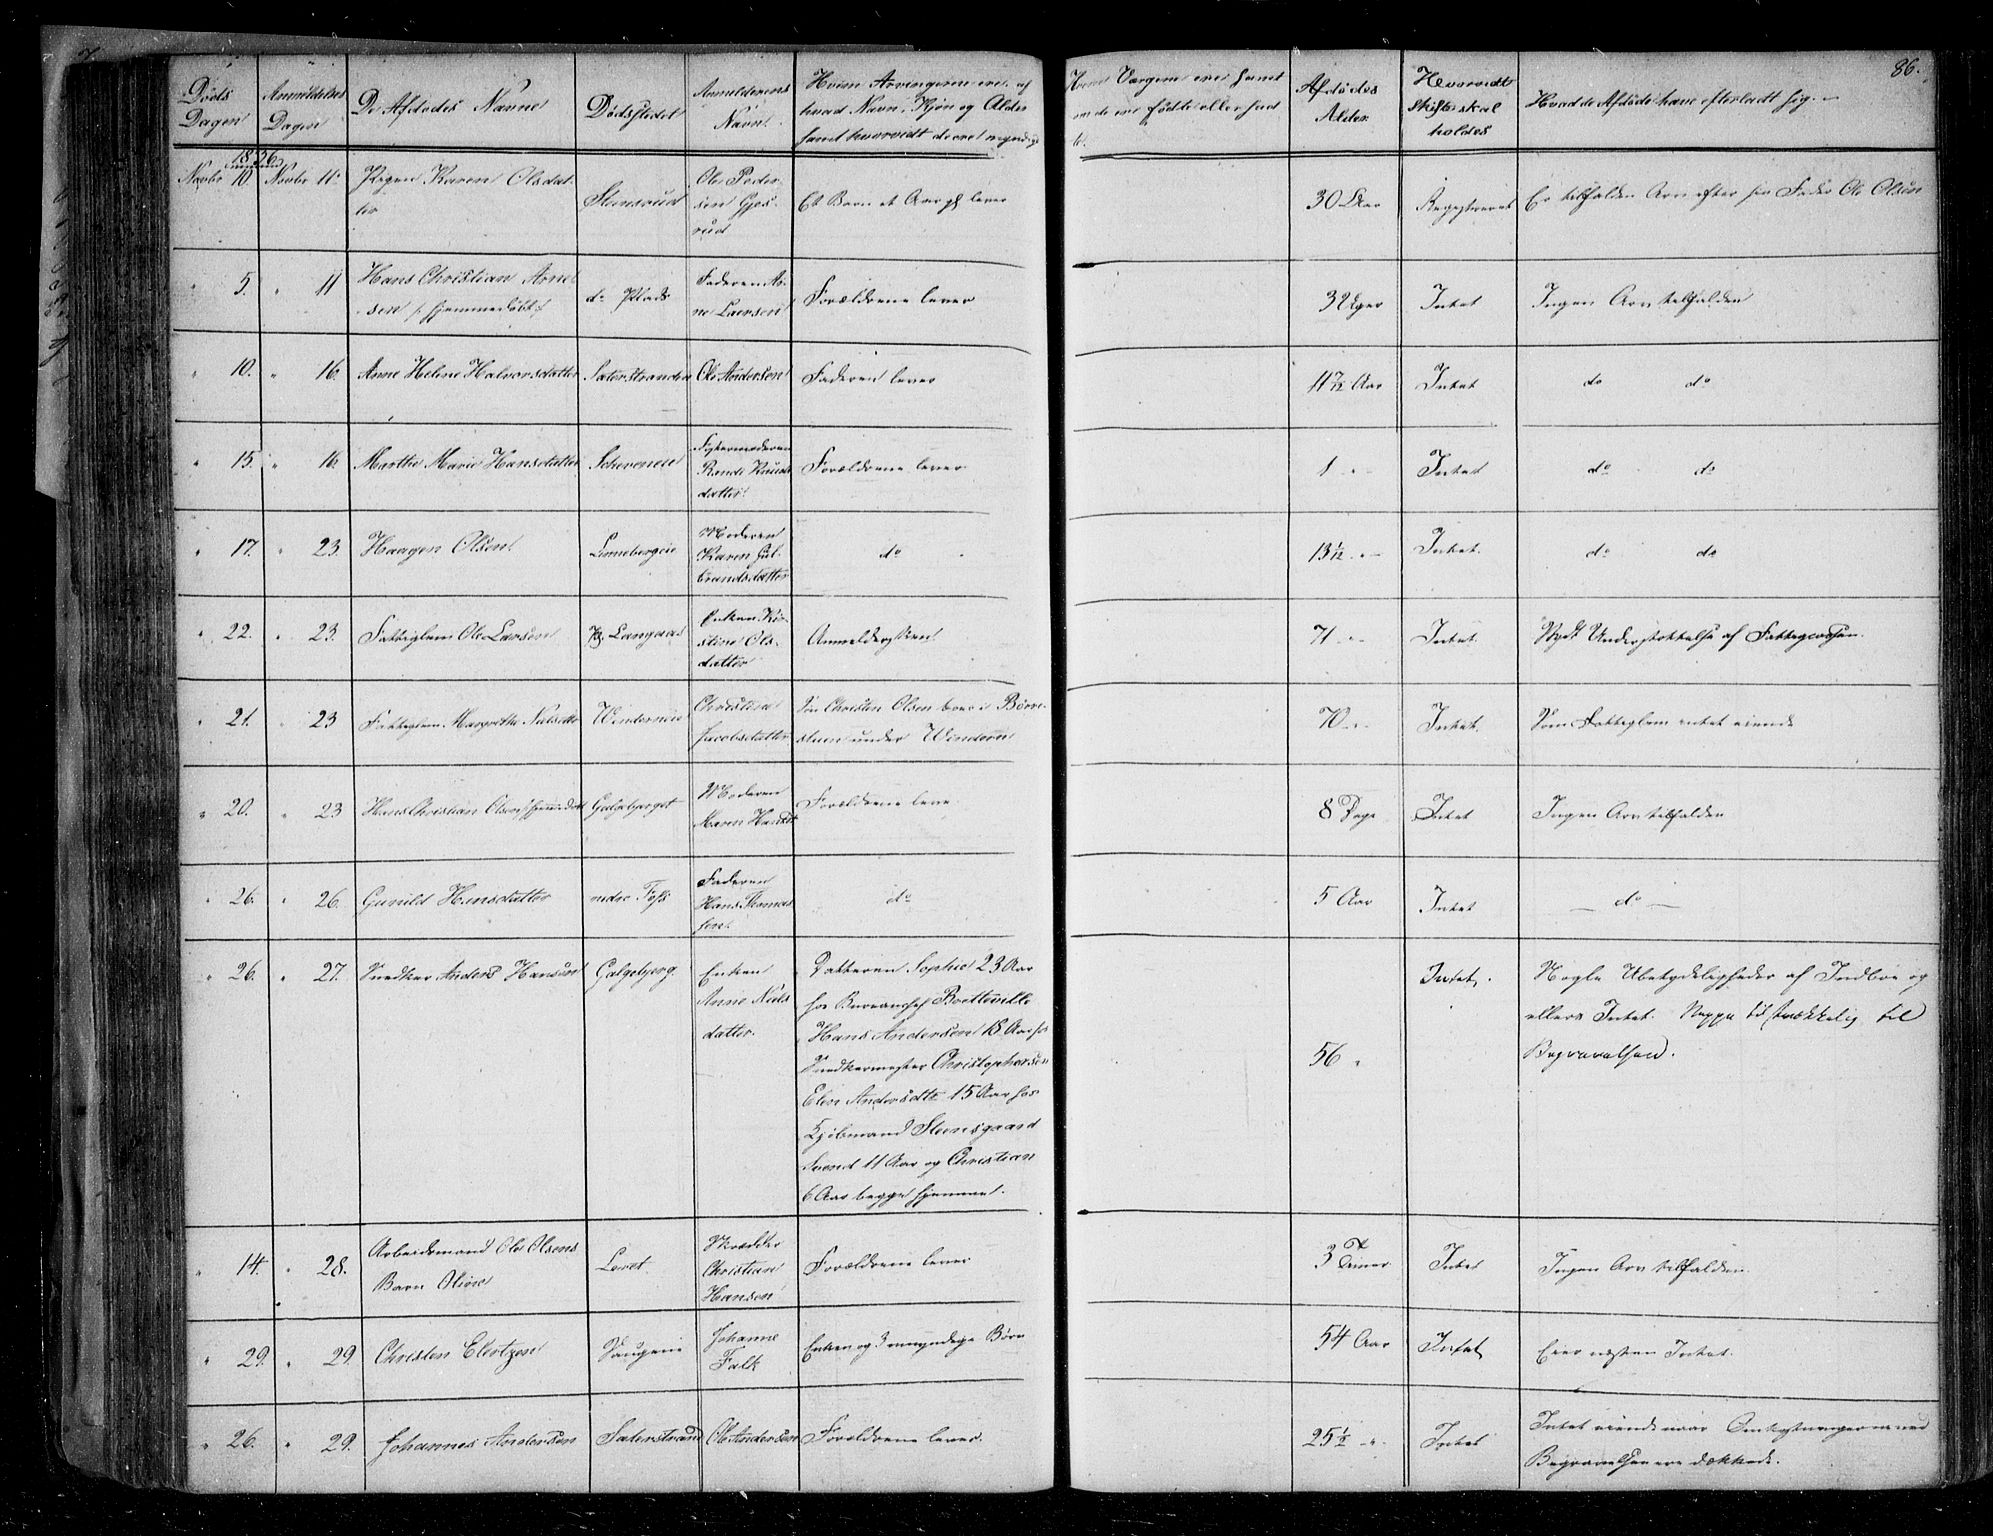 86.
Døds Dagen
Anmeldelses Dagen
De Afdødes Navne
Dødsstedet
Anmelderens Navn.
Hvem Arvingerne ere, af
hvad Navn, Kjøn og Alder
samt hvorvidt de ere myndige
Værgerne ere samt
Afdødes Alder
Hvorvidt Skifte skal holdes
Hvad de Afdøde have efterladt sig.
1856
Novbr 10. Novbr 11 Pigen Karen Olsdat-
ter
Stensrud
Ole Peder-
sen Gjes-
rud
Et Barn et Aar gl lever
30 Aar
Registreret
Er tilfalden Arv efter sin Fader Ole Olsen
" 5. " 11 Hans Christian Arne-
sen /: hjemmedøbt :/
do Plads
Faderen Ar-
ne Larsen
Forældrene lever
3 Uger
Intet
Ingen Arv tilfalden
" 10. " 16. Anne Helene Halvorsdatter
Saterstranden
Ole Andersen
Faderen lever
11 7/12 Aar
Intet
do do
" 15. " 16. Marthe Marie Hansdatter
Fostermoderen
Randi Knuds
datter
Forældrene lever
1 "
Intet
do do
" 17. " 23 Haagen Olsen
Moderen
Karen Gul-
brandsdatter
do
13 1/12 "
Intet.
do do
" 22. " 23. Fattiglem Ole Larsen
Langaas
Enken Kir-
stine Ols-
datter
Anmeldersken
71 "
Intet
Nydt Understøttelse af Fattigcassen.
" 21. " 23 Fattiglem Margrethe Nilsdtr
Christine
Jacobsdatter
Søn Christen Olsen boer i Børre-
stuen under Windern
70 "
Intet.
Som Fattiglem intet eiende
" 20. " 23 Hans Christian Olsen
Galgebjerget
Moderen
Maren Hansdt
Forældrene leve
8 Dage
Intet
Ingen Arv tilfalden
" 26. " 26. Gunild Hansdatter
nedre Foss
Faderen
Hans Thomas
sen
do
5 Aar
Intet
— do —
" 26. " 27. Snedker Anders Hansen
Galgebjerg.
Enken
Anne Niels
datter.
Datteren Sophie 23 Aar
hos Bureauchef Botteville
Hans Andersen 18 Aar hos
Snedkermester Christophersen
Elen Andersdtr 15 Aar hos
Kjøbmand Steensgaard
Svend 11 Aar og Christian
6 Aar begge hjemme.
56 "
Intet.
Nogle Ubetydeligheder af Indboe og
ellers Intet. Neppe tilstrækkelig til
Begravelsen.
" 14. " 28. Arbeidsmand Ole Olsens
Barn Oline
Skrædder
Christian
Hansen
Forældrene lever
3
Intet
Ingen Arv tilfalden.
" 29. " 29. Christen Elertzen
Johanne
Falk
Enken og 3 myndige Børn
54 Aar
Intet
Eier næsten Intet.
" 26. " 29. Johannes Andersen
Saterstrand
Ole Andersen
Forældrene lever.
25 1/2 "
Intet
Intet eiende naar Omkostningerne ved
Begravelsen ere dækkede.